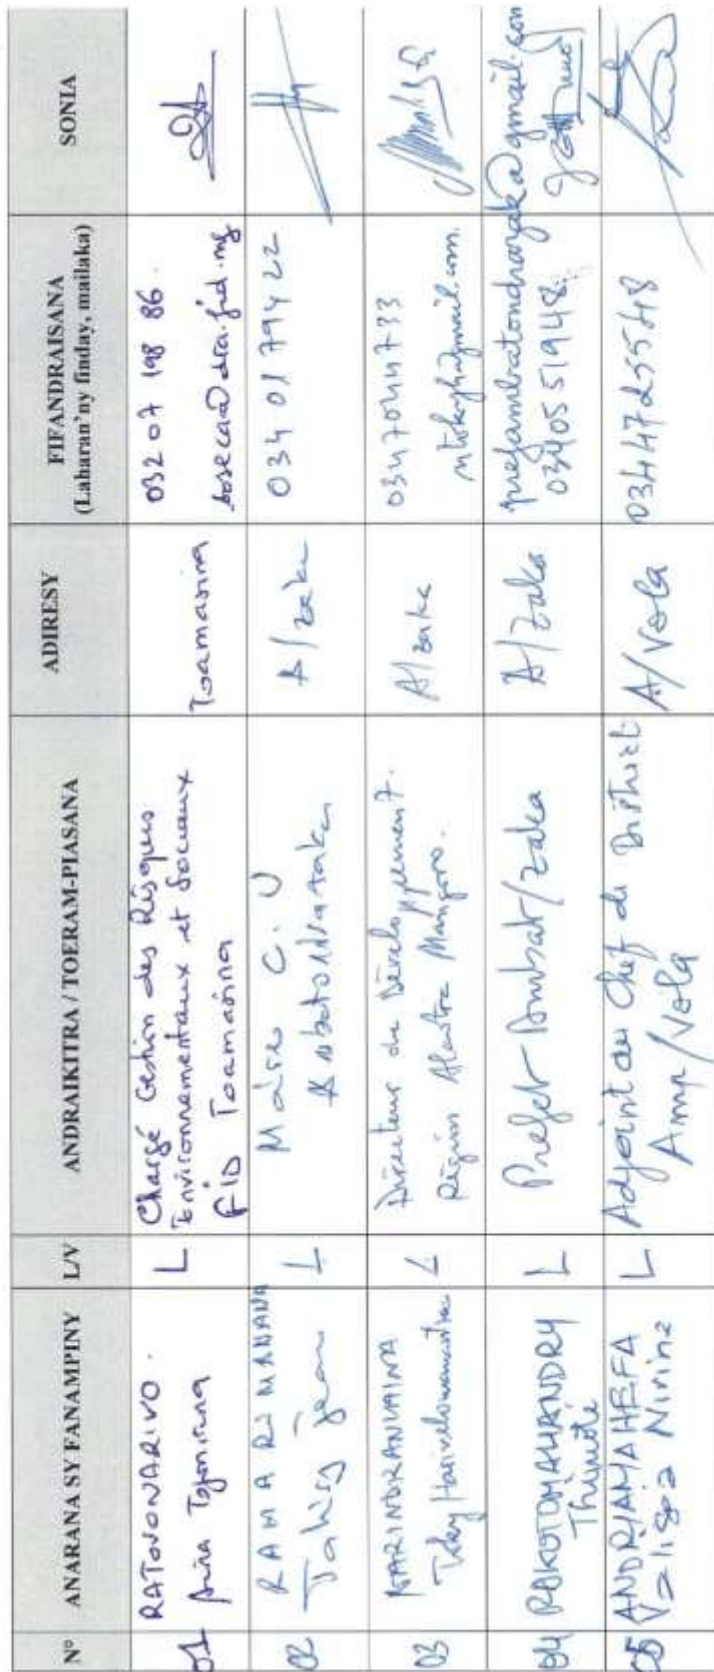 N° ANARANA SY FANAMPINY L/V ANDRAIKITRA / TOERAM-PIASANA ADIRESY FIFANDRAISANA (Laharan'ny finday, mailaka) SONIA
01 RATOVONARIVO.
L
Chargé Gestion des Risques
Environnementaux et Sociaux
FID Toamasina
Toamasina
032 07 198 86.
02 RAMARIMANANA
Jean
L
Maire C.U
Ambatondrazaka
A/zaka
034 01 794 22
03 NARINDRANIAINA
L
Directeur du Développement.
Région Alaotra Mangoro.
A/zaka
0347044733
04 RAKOTOMAHANDRY
Thimoté
L
Prefet Ambat/zaka
A/zaka
prefambatondrazaka@gmail.com
0340551948
05 ANDRIAMAHEFA
Nirina
L
Adjoint au Chef de District
Amp/Vola
A/Vola
0344725548